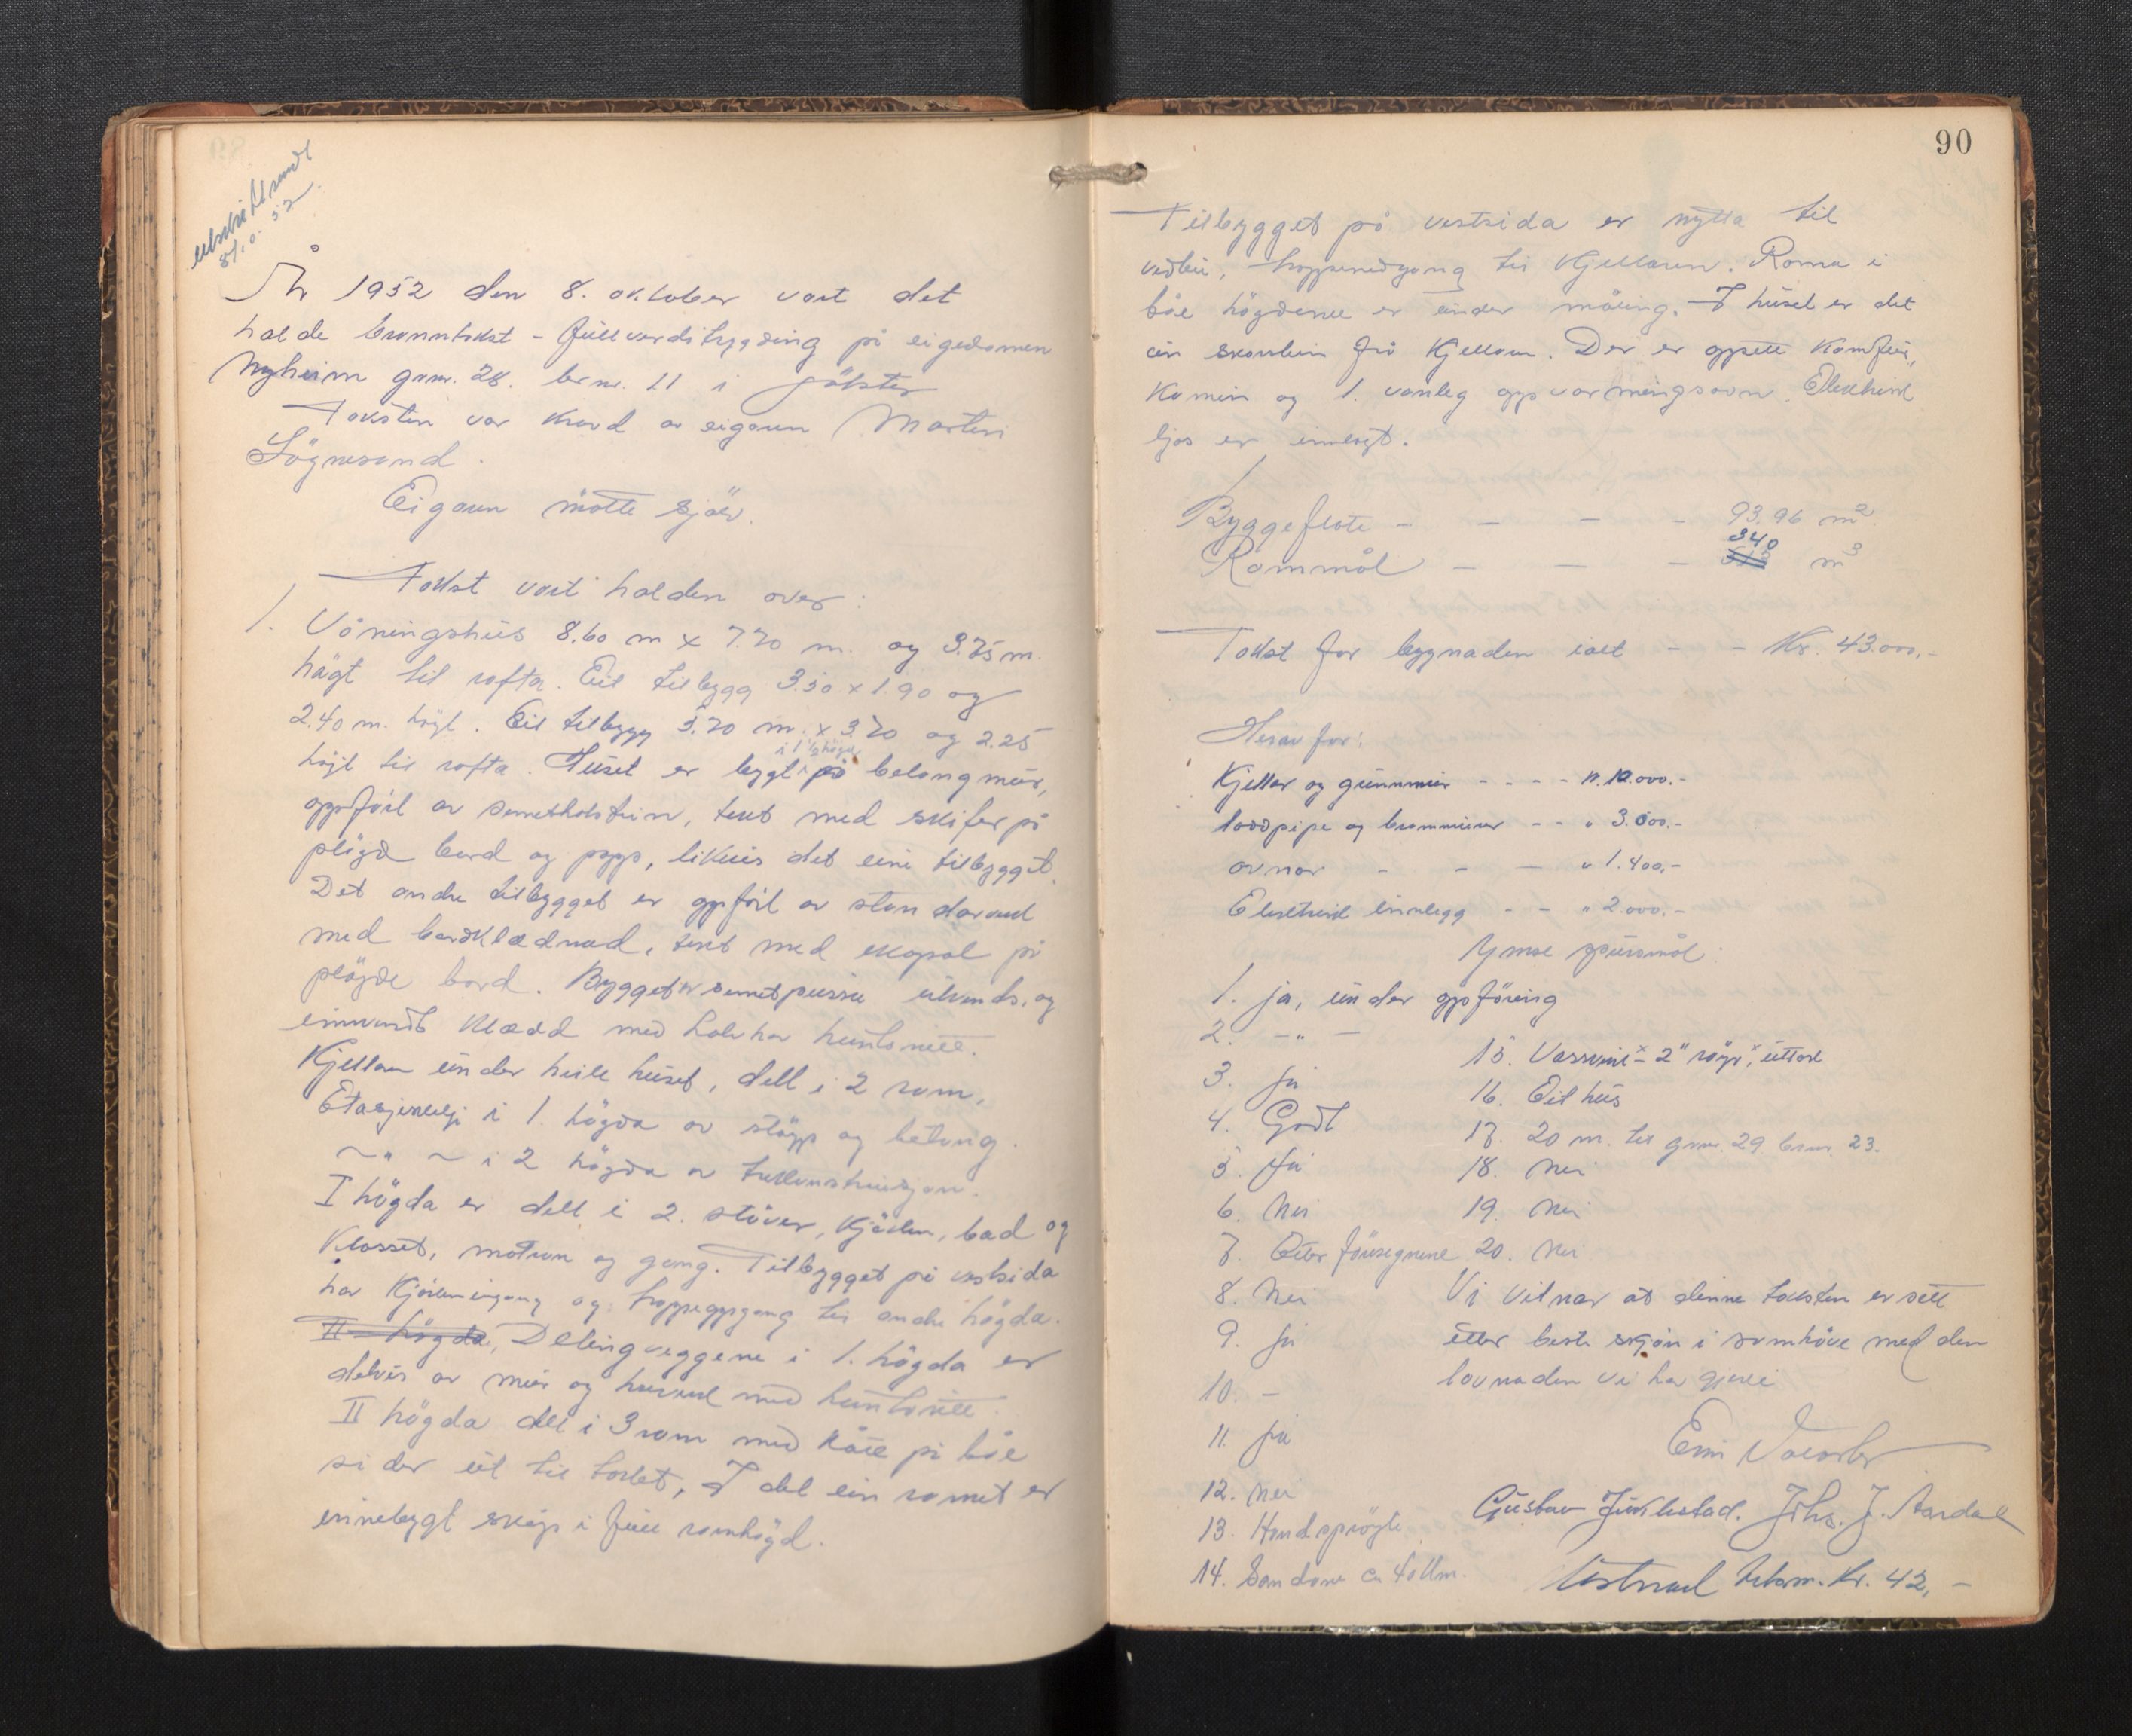 8/10. 52
År 1952 den 8. oktober vart det
halde branntakst - fullverditrygding på eigedomen
Nyheim gnr. 28. brnr. 11 i Jölster
Taksten var kravd av eigaren Martin
Sögnesand.
Eigaren mötte sjölv.
Takst vart halden over:
1. Våningshus 8.60 m x 7.70 m. og 3.75 m.
högt til rofta. Eit tilbygg 3.50 x 1.90 og
2.40 m. högt. Eit tilbygg 3.70 m. x 3.70 og 2.25
i 1 1/2 högd
högt til rofta. Huset er bygt på betong mur,
oppfört av sementholstein, tekt med skifer på
pløgd bord og papp, likeeis det eine tilbygget.
Det andre tilbygget er oppfört av standarved
med bordklædnad, tekt med ekapal på
plögde bord. Bygget er sementpussa utvends. og
innvendt klædd med halvhar huntonitt.
Kjellar under heile huset, delt i 2 rom.
Etasjeskilje i 1. högda av støyp og betong.
~ " ~ i 2 högda av trekonstruksjon.
I högda er delt i 2. stover, kjöken, bad og
klosset, matrom og gang. Tilbygget på vestsida
har kjökeninngang og trappeoppgang til andre högda.
II högda, Delingveggene i 1. högda er
delvis av mur og treverk med huntonitt.
II högda delt i 3 rom med kott på båe
sider ut til taket, I det ein romet er
innebygt skåp i full romhögd.
90
Tilbygget på vestsida er nytta til
vedbu, trappenedgang til kjellaren. Roma i
båe högdene er under måling. I huset er det
ein skorstein frå kjellar. Der er oppsett komfyr,
kamin og 1. vanleg oppvarmingsovn. Elektrisk
ljos er innlagt.
Byggeflate - - - - 93.96 m2
340
Rommål - - - m3
Takst for bygnaden ialt - - Kr. 43.000,-
Herav for:
Kjellar og grunnmur - - - - " 10.000.-
loddpipe og brannmurer - - " 3.000.-
ovnar - - - " 1.400,-
Elektrisk innlegg - - " 2.000.-
Ymse spursmål:
1. ja, under oppföring
2. - " -
3. ja
4. Godt
5. ja
6. Nei
7. Etter föresegnene
8. Nei
9. ja
10. -
11. ja
12. Nei
13. Handspröyte
14. Sandane ca 40 km.
15. Vassvin - 2" röyr, uttak
16. Eit hus
17. 20 m. til gnr. 29 brnr. 23.
18. Nei
19. Nei
20. Nei
Vi vitnar at denne taksten er sett
etter beste skjön i samhöve med den
lovnaden vi har gjeve
Gustav Juklestad. Johs. J. Aardal
Kr. 42,-